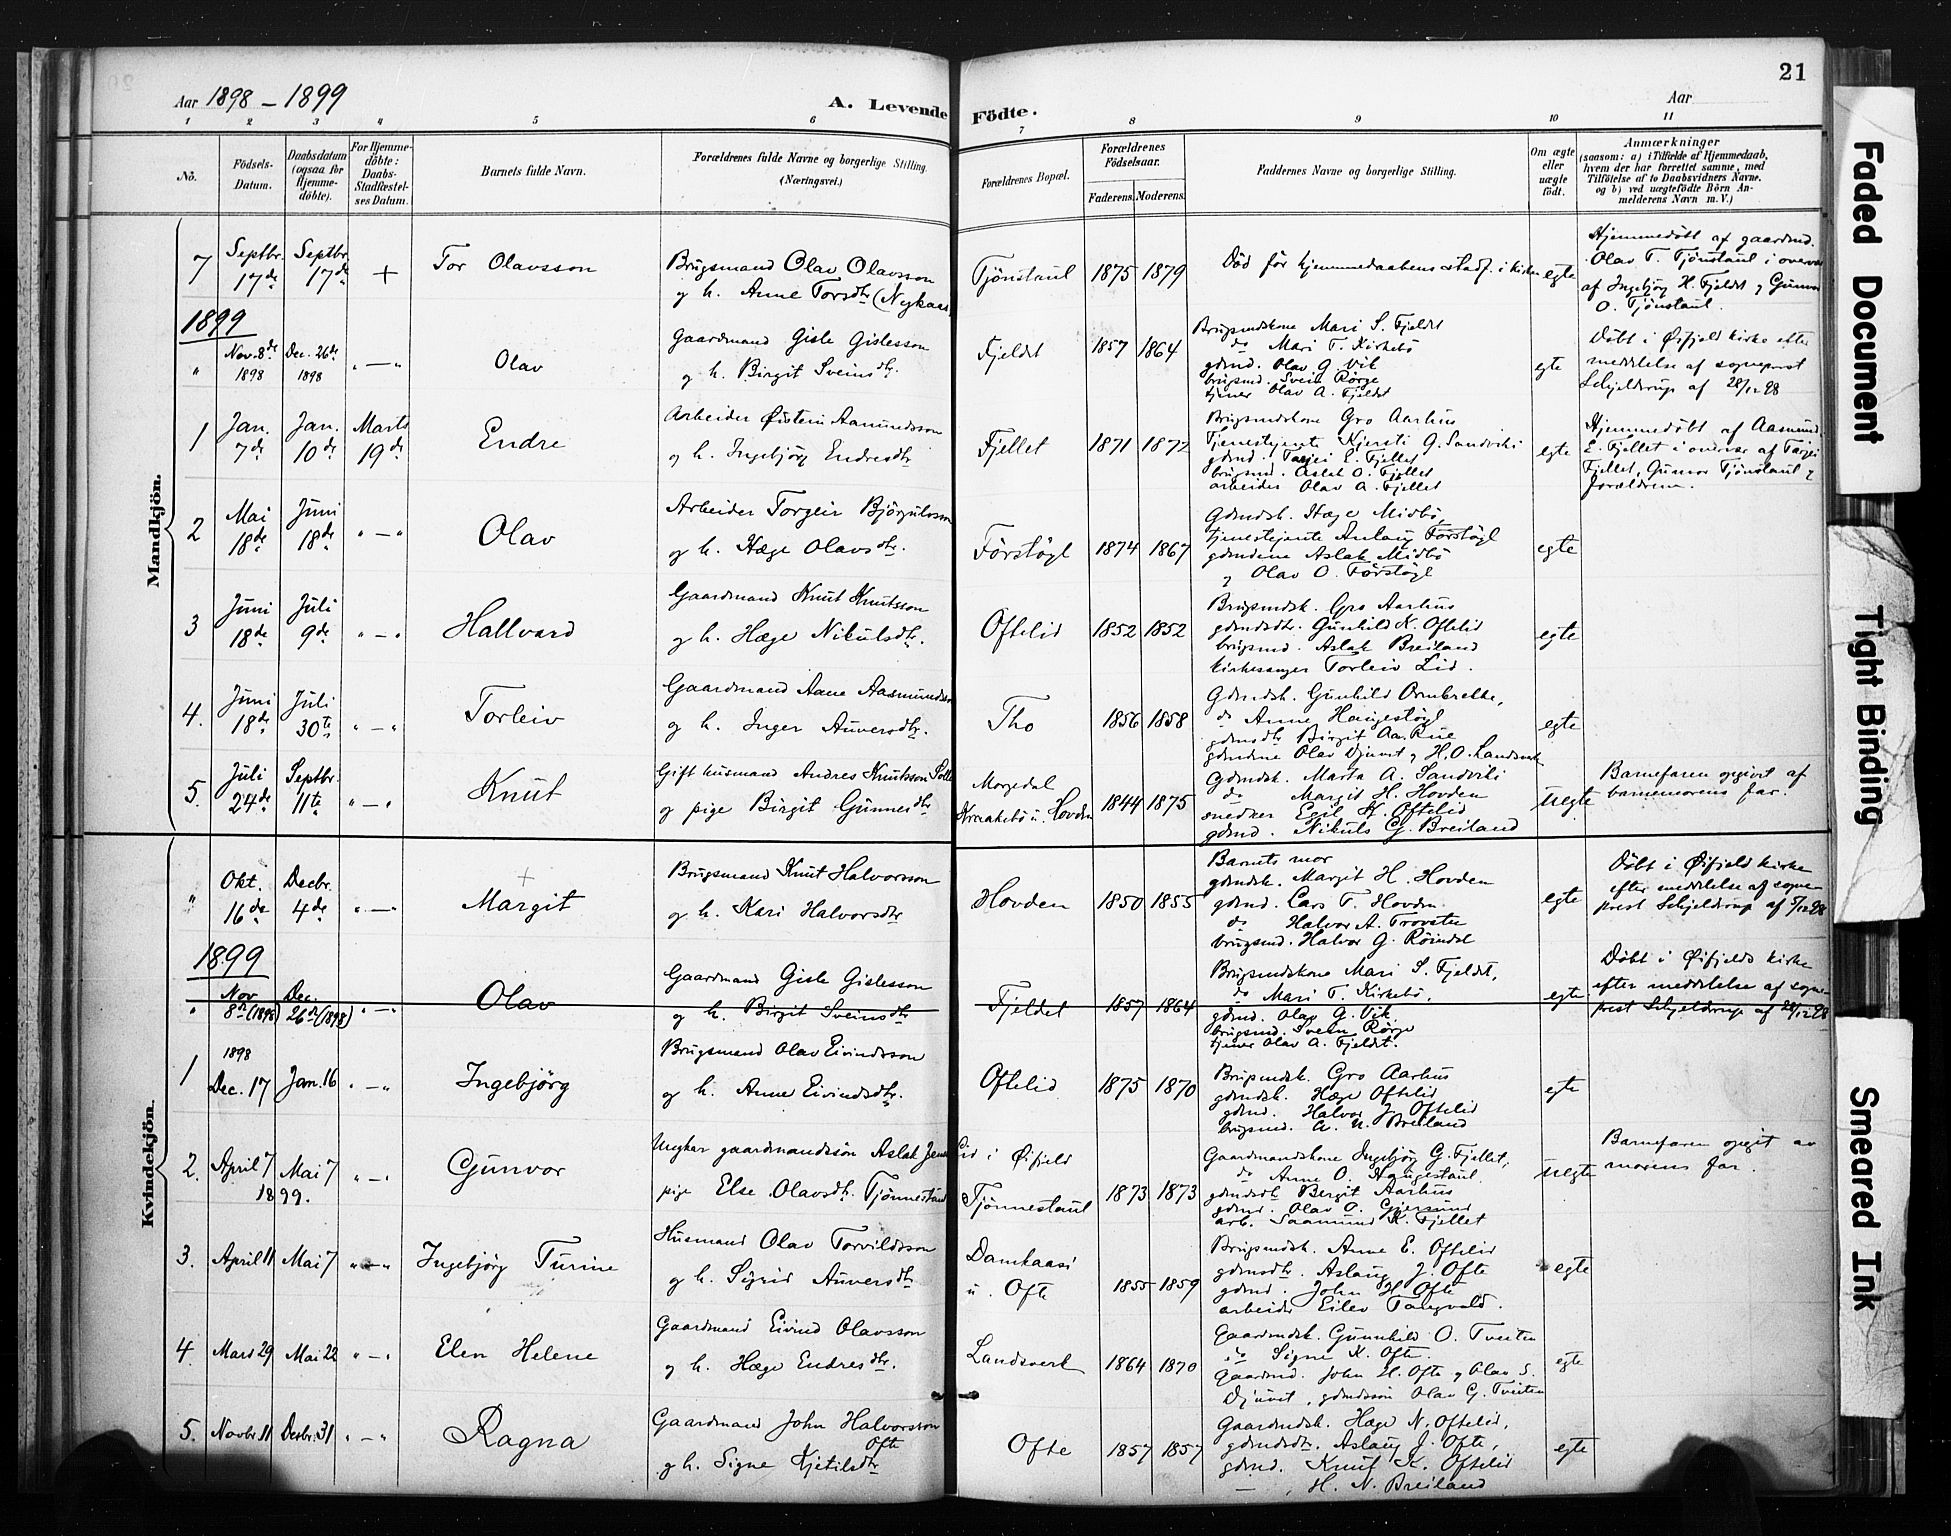 21
Aar 1898 - 1899
A. Levende Födte.
Aar
1 2 3 4 5 6 7 8 9 10 11
No.
Födsels-Datum.
Daabsdatum (ogsaa for Hjemme-döbte).
For Hjemme-döbte: Daabs-Stadfæstel-ses Datum.
Barnets fulde Navn.
Forældrenes fulde Navne og borgerlige Stilling. (Næringsvei.)
Forældrenes Bopæl.
Forældrenes Födselsaar.
Faderens. Moderens.
Faddernes Navne og borgerlige Stilling.
Om ægte eller uægte födt.
Anmærkninger
(saasom: a) i Tilfælde af Hjemmedaab, hvem der har forrettet samme, med Tilföielse af to Daabsvidners Navne, og b) ved uægtefödte Börn An-melderens Navn m. V.)
Mandkjön.
7 Septbr. 17de Septbr. 17de + Tor Olavsson
Brugsmand Olav Olavsson
og h. Anne Torsdtr (Nykaas)
Tjönstaul 1875 1879
Död för hjemmedaabens stadf. i kirken egte
Hjemmedöbt af gaardmd.
Olav T. Tjönstaul i overvær
af Ingebjörg H. Fjeldet og Gunvor
O. Tjönstaul.
1899
" Nov. 8de 1898 Dec. 26de 1898 " — " Olav
Gaardmand Gisle Gislesson
og h. Birgit Sveinsdtr.
Fjeldet 1857 1864
Brugsmdskone Mari S. Fjeldet
do Mari T. Kirkebö
gdmd. Olav G. Vik
brugsmd. Svein Rörge
tjener Olav A. Fjeldet
egte
Döbt i Öifjeld kirke efter
meddelelse af sogneprest
Schjeldrup af 28/12 98
1 Jan. 7de Jan. 10de Marts 19de Endre
Arbeider Öistein Aamundsson
og h. Ingebjörg Endresdtr
Fjellet 1871 1872
Brugsmdskone Gro Aarhus
Tjenestejente Kjersti G. Sandviki
gdmd. Tarjei E. Fjellet
brugsmd. Aslak O. Fjellet
arbeider Olav A. Fjellet
egte
Hjemmedöbt af Aasmund
E. Fjellet i overvær af Tarjei
Fjellet, Gunvor Tjönstaul og
forældrene.
2 Mai 18de Juni 18de " — " Olav
Arbeider Torgeir Björgulvsson
og h. Hæge Olavsdtr.
Förstöyl 1874 1867
Gdmdsk. Hæge Midbö
tjenestejente Anlaug Förstöyl
gdmdene Aslak Midbö
og Olav O. Förstöyl
egte
3 Juni 18de Juli 9de " — " Hallvard
Gaardmand Knut Knutsson
og h. Hæge Nikulsdtr.
Oftelid 1852 1852
Brugsmdsk. Gro Aarhus
gdmdsdtr. Gunhild K. Oftelid
brugsmd. Aslak Breiland
kirkesanger Torleiv Lid.
egte
4. Juni 18de Juli 30te " — " Torleiv
Gaardmand Aane Aasmundsson
og h. Inger Auversdtr.
Tho 1856 1858
Gdmdsk. Gunhild Ormbrekke,
do Anne Haugestöyl
gdmdsdtr Birgit Aa. Rue
gdmdene Olav Djuvet og H. O. Landsverk
egte
5. Juli 24de Septbr. 11te " — " Knut
Gift husmand Andres Knutsson
og pige Birgit Gunnesdtr
Morgedal
Kraakebö u. Hovden 1844 1875
Gdmdsk. Marta A. Sandviki
do Margit H. Hovden
snedker Egil K. Oftelid
gdmd. Nikuls G. Breiland
uegte
Barnefaren opgivet af
barnemorens far.
Kvindekjön.
" Okt. 16de Decbr. 4de " — " Margit
Brugsmand Knut Halvorsson
og h. Kari Halvorsdtr
Hovden 1850 1855
Barnets mor
gdmdsk. Margit H. Hovden
gdmd. Lars T. Hovden
do Halvor A. Trovatn
brugsmd. Halvor G. Röindal
egte
Döbt i Öifjeld kirke
efter meddelelse af sogne-
prest Schjeldrup af 5/12 98
1899
" Nov 8de (1898) Dec. 26de (1898) " — " Olav
Gaardmand Gisle Gislesson
og h. Birgit Sveinsdtr
Fjeldet 1857 1864
Brugsmdskone Mari S. Fjeldet,
do Mari T. Kirkebö,
gdmd. Olav G. Vik,
brugsmd. Svein Rörge
tjener Olav A. Fjeldet.
egte
Döbt i Öifjelds kirke
efter meddelelse af sogne-
prest Schjeldrup af 28/12 98
1 1898 Dec. 17 Jan. 16 " — " Ingebjörg
Brugsmand Olav Eivindsson
og h. Anne Eivindsdtr.
Oftelid 1875 1870
Brugsmdsk. Gro Aarhus
gdmdsk. Hæge Oftelid
gdmd. Halvor J. Oftelid
brugsmd. A. N. Breiland
egte
2. April 7 1899. Mai 7 " — " Gunvor
Ungkar gaardmandssön Aslak
pige Else Olavsdtr. Tjönnestaul
Lid i Öifjeld
Tjönnestaul 1873 1873
Gaardmandskone Ingebjörg G. Fjellet,
do Anne O. Haugestaul
gdmdsdtr Bergit Aarhus
gdmd. Olav O. Gjersund
arb. Saamund K. Fjellet
uegte
Barnefaren opgit av
morens far.
3. April 11 Mai 7 " — " Ingebjörg Turine
Husmand Olav Torvildsson
og h. Sigrid Auversdtr
Damkaasi
u. Ofte 1855 1859
Brugsmdsk. Anne E. Oftelid
gdmdsdtr. Aslaug J. Ofte
gdmd. John H. Ofte
arbeider Eilev Taagvald.
egte
4. Mars 29 Mai 22 " — " Elen Helene
Gaardmand Eivind Olavsson
og h. Hæge Endresdtr.
Landsverk 1864 1870
Gaardmdsk. Gunnhild O. Tveiten
do Signe K. Ofte.
Gaardmd. John H. Ofte og Olav S.
Djuvet, gdmdssön Olav G. Tveiten
egte
5. Novbr. 11 Decbr. 31 " — " Ragna
Gaardmand John Halvorsson
Ofte
og h. Signe Kjetilsdtr
Ofte 1857 1857
Gaardmdsk. Hæge N. Oftelid,
gdmdsdtr. Aslaug J. Ofte,
gdmd. Knut K. Oftelid
— , H. N. Breiland
egte
Faded Document
Tight Binding
Smeared Ink